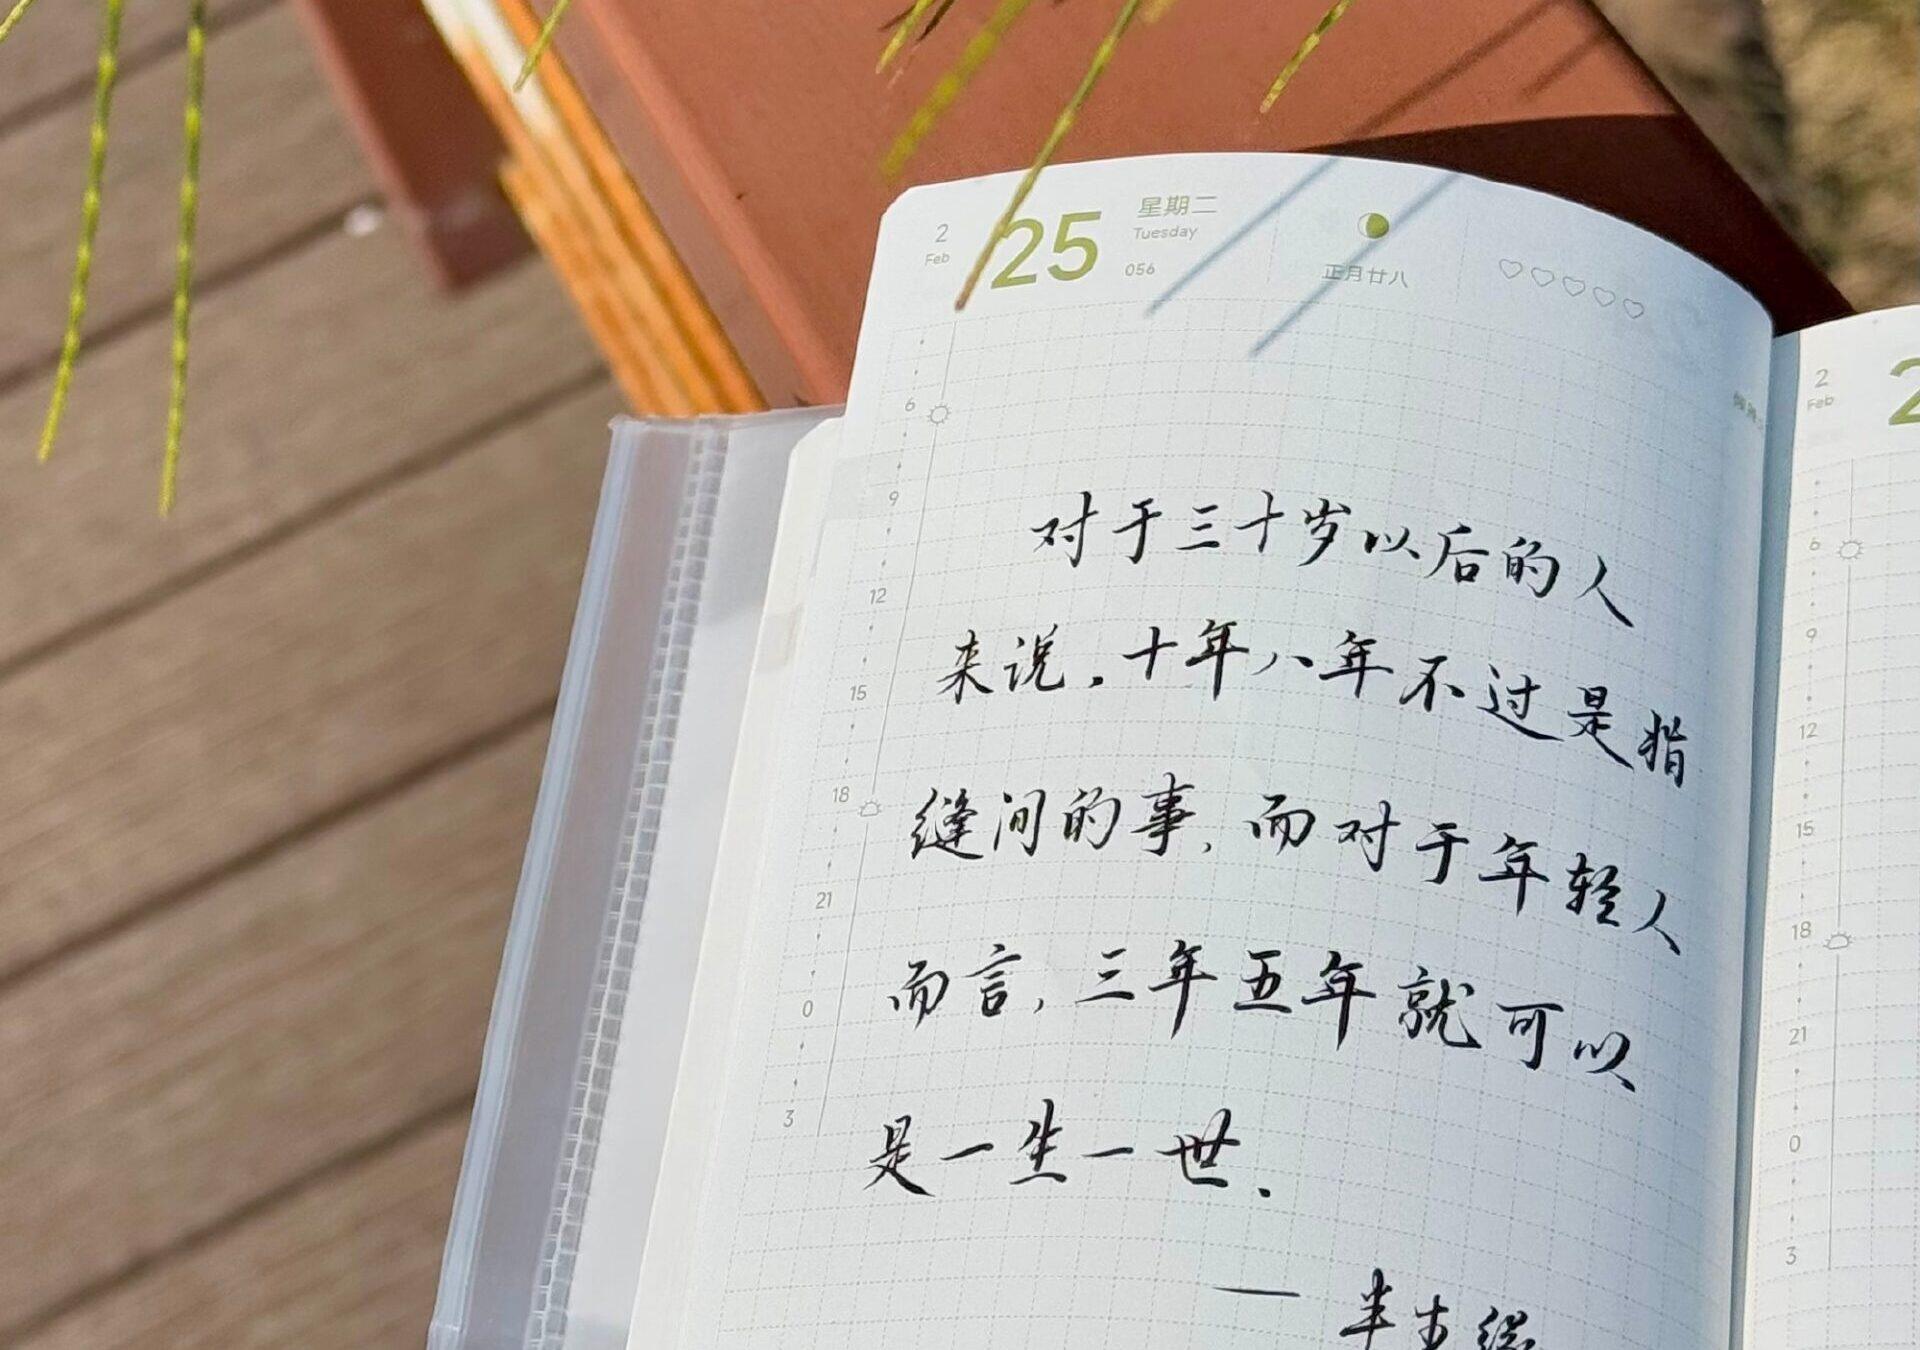 2
Feb
25
星期二
Tuesday
056
正月廿八
6
9
12
15
18
21
0
3
对于三十岁以后的人
来说，十年八年不过是指
缝间的事，而对于年轻人
而言，三年五年就可以
是一生一世.
——半生缘
2
Feb
2
6
9
12
15
18
21
0
3